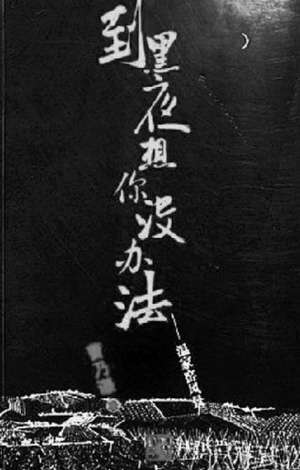 到黑夜想你没办法
——温家窑风景